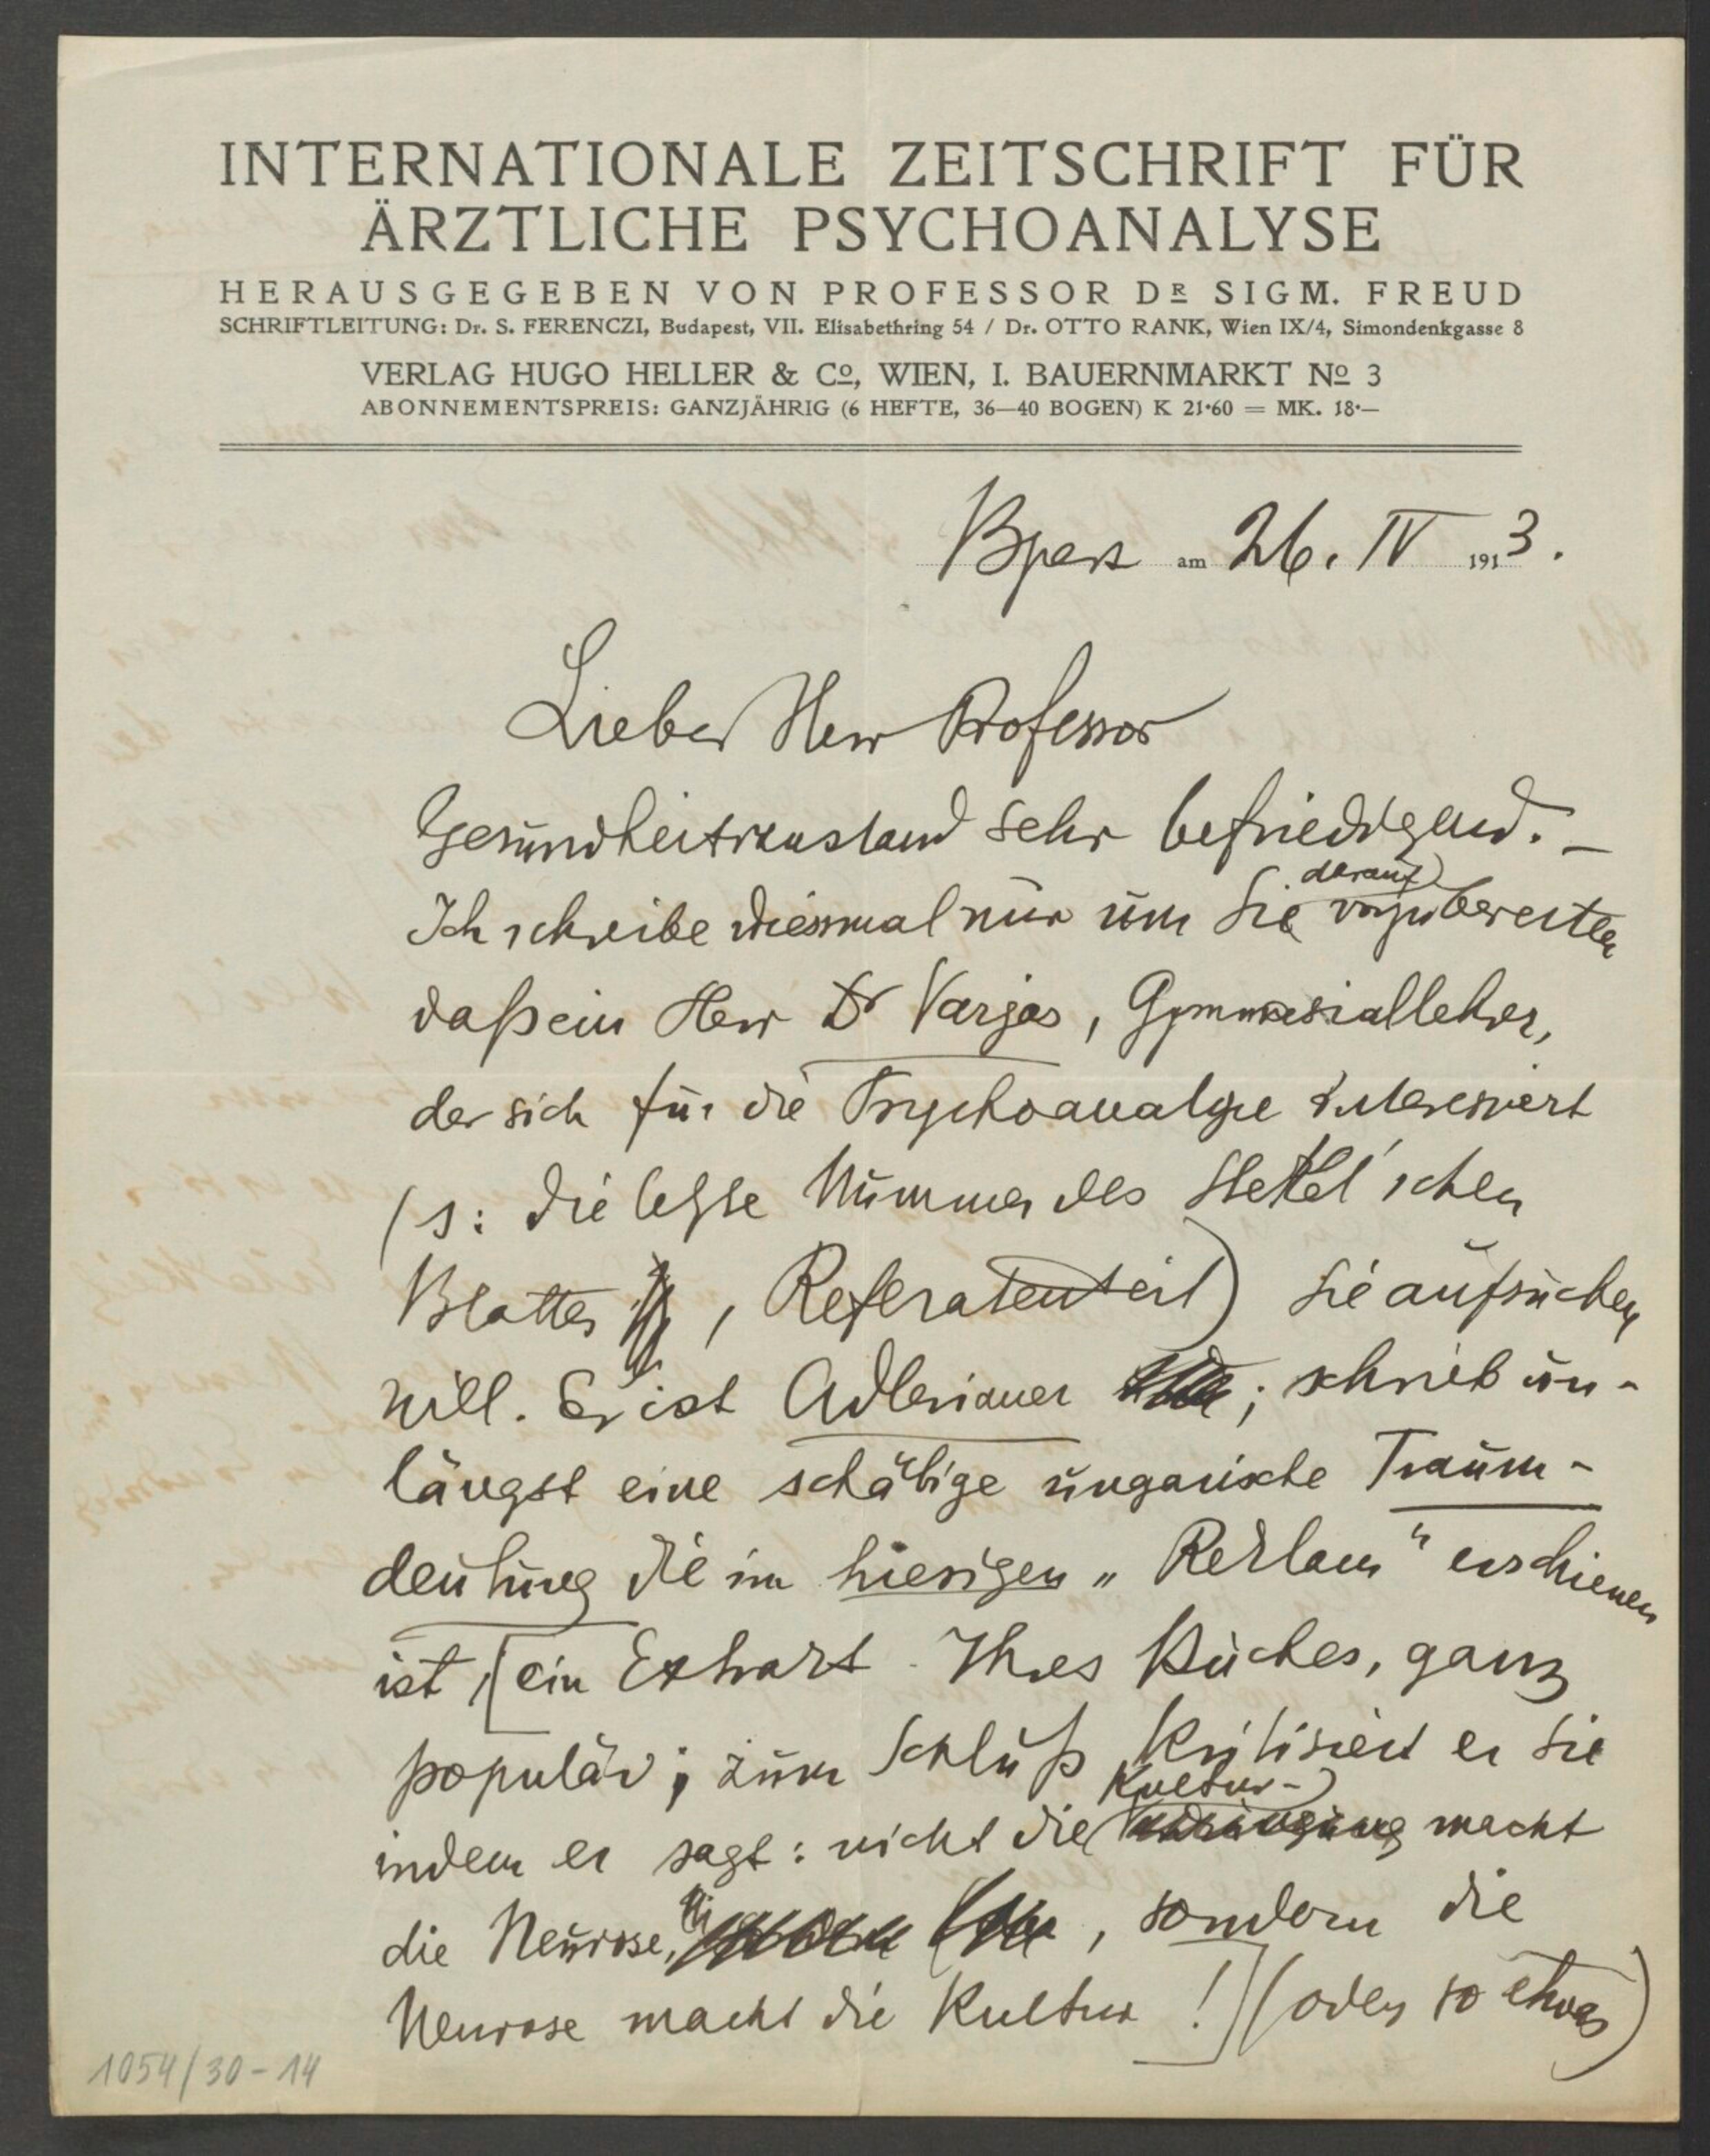 INTERNATIONALE ZEITSCHRIFT FÜR
ÄRZTLICHE PSYCHOANALYSE
HERAUSGEGEBEN VON PROFESSOR DR SIGM. FREUD
SCHRIFTLEITUNG: Dr. S. FERENCZI, Budapest, VII. Elisabethring 54 / Dr. OTTO RANK, Wien IX/4, Simondenkgasse 8
VERLAG HUGO HELLER & Co, WIEN, I. BAUERNMARKT No 3
ABONNEMENTSPREIS: GANZJÄHRIG (6 HEFTE, 36—40 BOGEN) K 21·60 = MK. 18·—
Bpest am 26. IV 1913.
Lieber Herr Professor
Gesundheitszustand sehr befriedigend. –
Ich schreibe diesmal nur um Sie darauf vorzubereiten
daß ein Herr Dr Varjas, Gymnasiallehrer,
der sich für die Psychoanalyse interessiert
(s: die letzte Nummer des Stekel'schen
Blattes, Referatenteil) Sie aufsuchen
will. Er ist Adlerianer; schrieb un-
längst eine schäbige ungarische Traum-
deutung die im hiesigen „Reklam" erschienen
ist, [ein Extrakt Ihres Buches, ganz
populär; zum Schluß kritisiert er Sie
indem er sagt: nicht die Kultur- macht
die Neurose, sondern die
Neurose macht die Kultur!] (oder so etwas)
1054/30-14